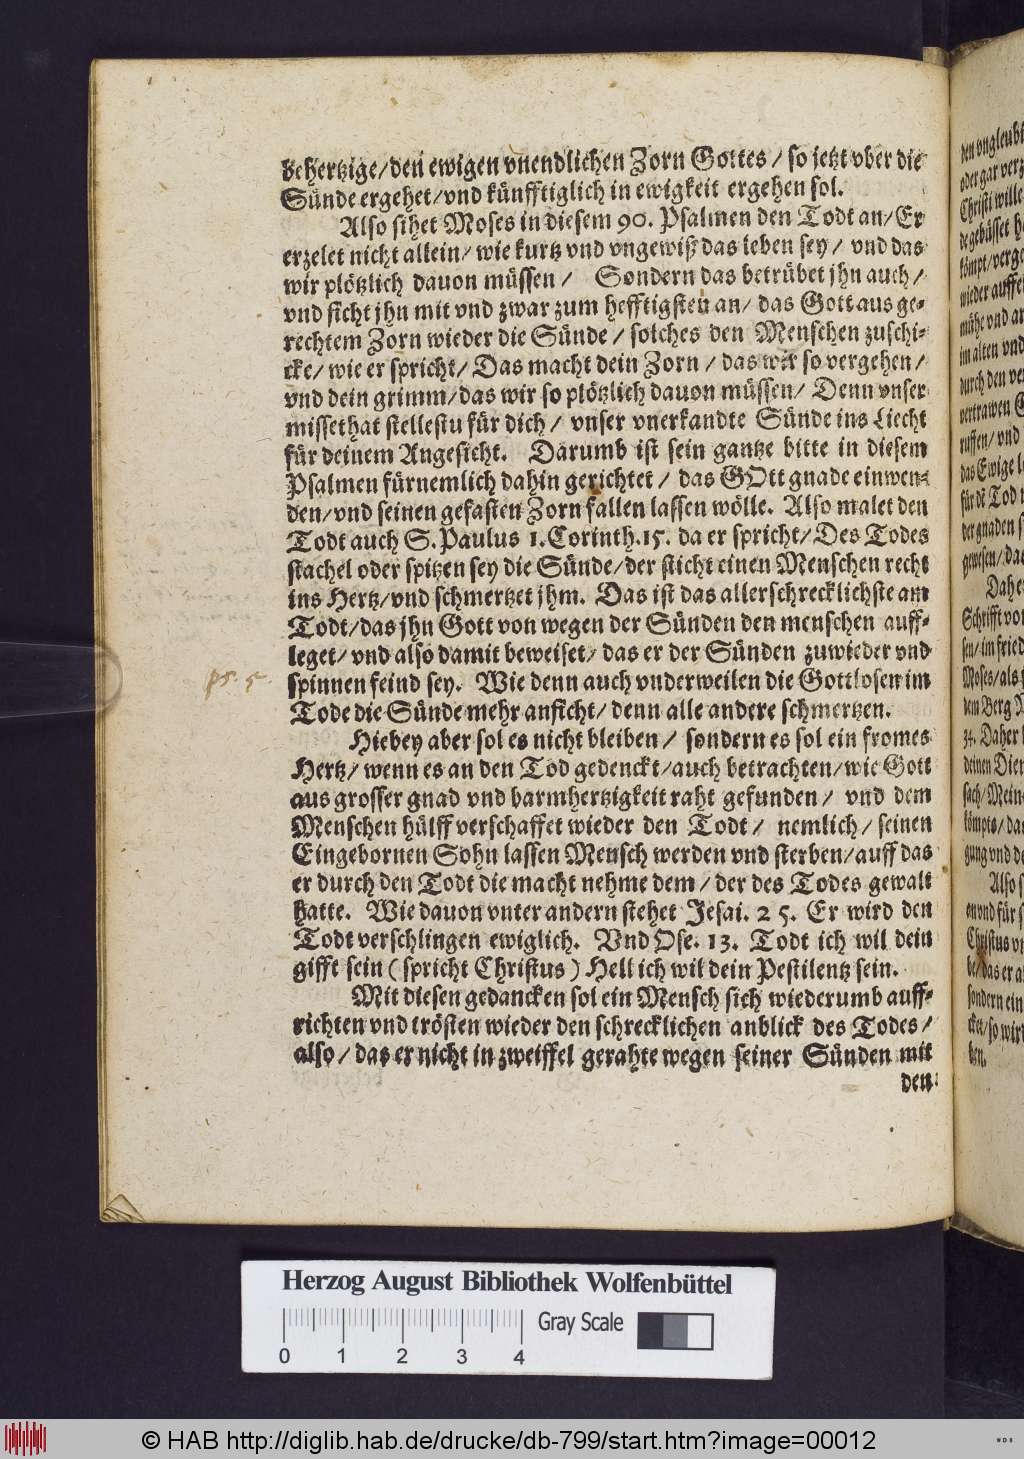 behertzige/den ewigen vnendlichen Zorn Gottes/ so jetzt vber die
Sünde ergehet/vnd künfftiglich in ewigkeit ergehen sol.
Also sihet Moses in diesem 90. Psalmen den Todt an/Er
erzelet nicht allein/ wie kurtz vnd vngewiß das leben sey/ vnd das
wir plötzlich dauon müssen/ Sondern das betrübet jhn auch/
vnd ficht jhn mit vnd zwar zum hefftigsten an/ das Gott aus ge-
rechtem Zorn wieder die Sünde/ solches den Menschen zuschi-
cke/ wie er spricht/ Das macht dein Zorn/ das wir so vergehen/
vnd dein grimm/das wir so plötzlich dauon müssen/ Denn vnser
missethat stellestu für dich/ vnser vnerkandte Sünde ins Liecht
für deinem Angesicht. Darumb ist sein gantze bitte in diesem
Psalmen fürnemlich dahin gerichtet/ das GOtt gnade einwen-
den/vnd seinen gefasten Zorn fallen lassen wölle. Also malet den
Todt auch S. Paulus 1. Corinth. 15. da er spricht/ Des Todes
stachel oder spitzen sey die Sünde/der sticht einen Menschen recht
ins Hertz/vnd schmertzet jhm. Das ist das allerschrecklichste am
Todt/das jhn Gott von wegen der Sünden den menschen auff-
leget/ vnd also damit beweiset/ das er der Sünden zuwieder vnd
ps. 5. spinnen feind sey. Wie denn auch vnderweilen die Gottlosen im
Tode die Sünde mehr anficht/ denn alle andere schmertzen.
Hiebey aber sol es nicht bleiben/ sondern es sol ein fromes
Hertz/ wenn es an den Tod gedenckt/auch betrachten/wie Gott
aus grosser gnad vnd barmhertzigkeit raht gefunden/ vnd dem
Menschen hülff verschaffet wieder den Todt/ nemlich/ seinen
Eingebornen Sohn lassen Mensch werden vnd sterben/auff das
er durch den Todt die macht nehme dem/ der des Todes gewalt
hatte. Wie dauon vnter andern stehet Jesai. 25. Er wird den
Todt verschlingen ewiglich. Vnd Ose. 13. Todt ich wil dein
gifft sein (spricht Christus) Hell ich wil dein Pestilentz sein.
Mit diesen gedancken sol ein Mensch sich wiederumb auff-
richten vnd trösten wieder den schrecklichen anblick des Todes/
also/ das er nicht in zweiffel gerahte wegen seiner Sünden mit
den
Herzog August Bibliothek Wolfenbüttel
Gray Scale
0 1 2 3 4
© HAB http://diglib.hab.de/drucke/db-799/start.htm?image=00012